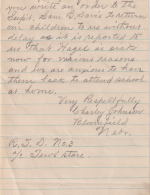 you write an order to the
Supt. Sam B. Davis to return
our children to us without
delay as it is reported to
us that Hazel is
now for various reasons
and we are anxious to have
them back to attend school
at home.
Very Respectfully
Charley Johnson
Bloomfield
Nebr.
R. F. D. No 3
c/o Jewel Store.